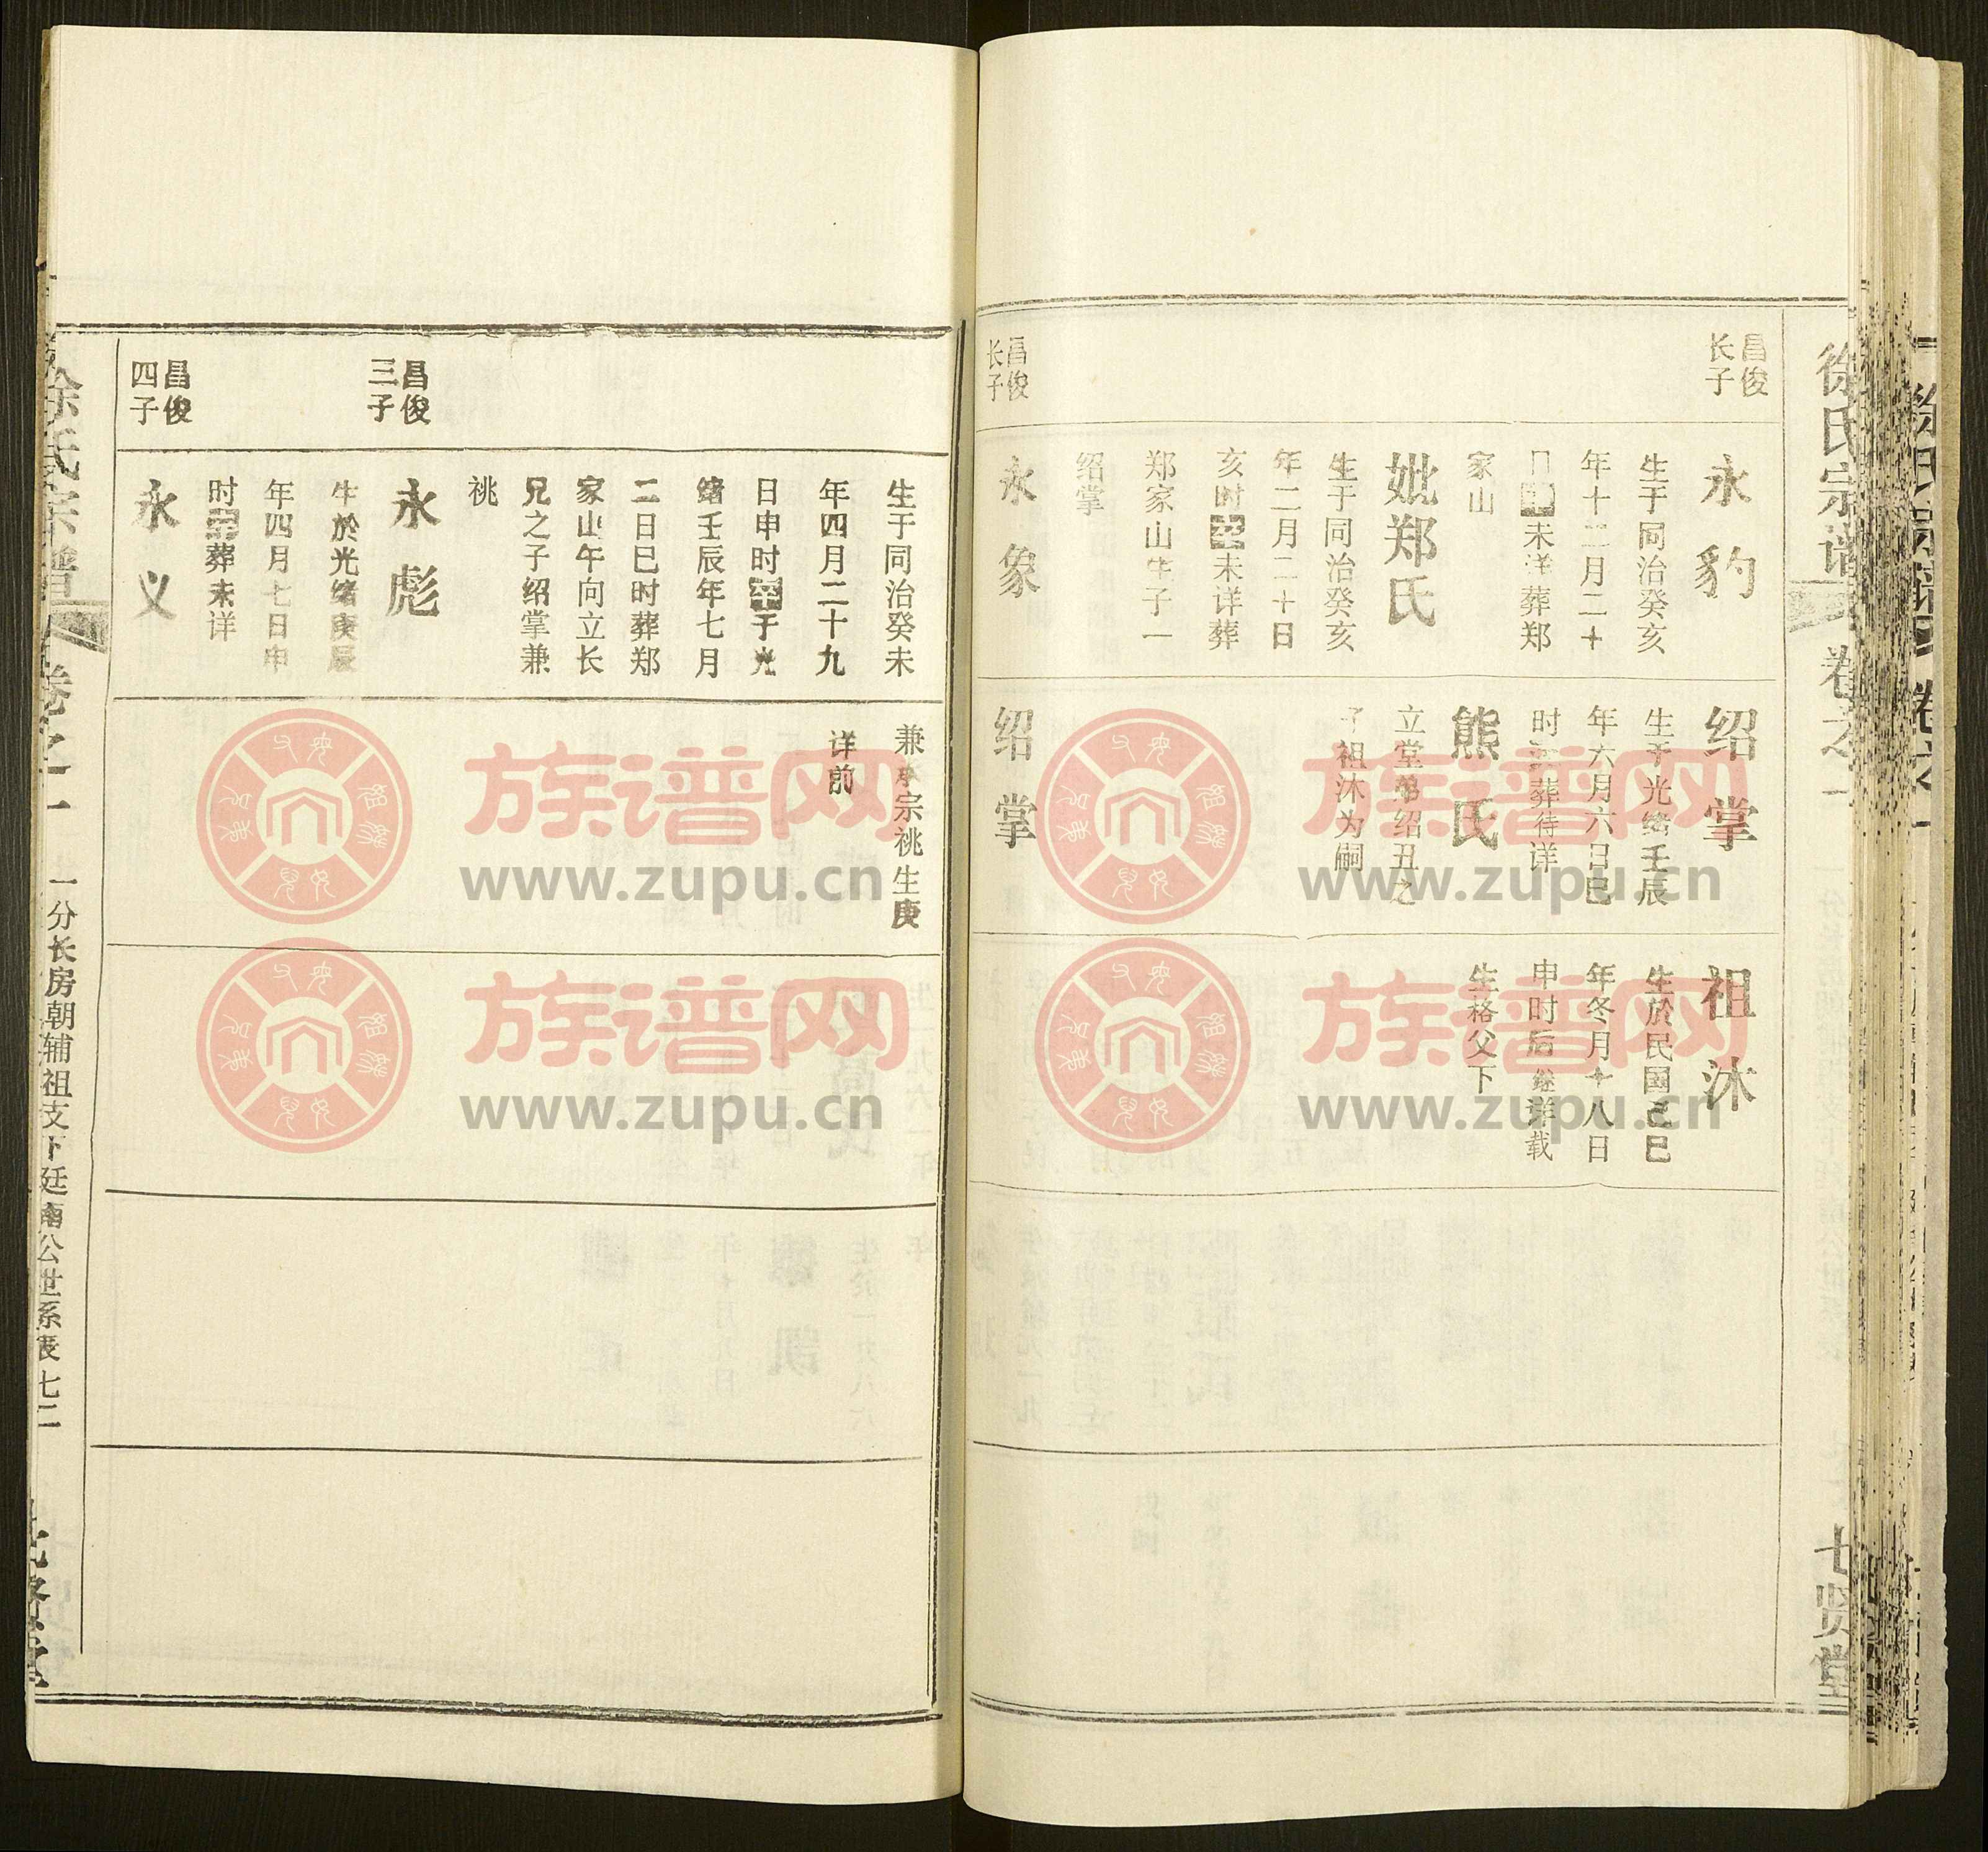 徐氏宗谱
卷之一
七贤堂
昌俊
长子
永豹
生于同治癸亥
年十二月二十
未详葬郑
家山
妣郑氏
生于同治癸亥
年二月二十日
亥时殁未详葬
郑家山生子一
绍掌
绍掌
生于光绪壬辰
年六月六日巳
葬待详
熊氏
立堂弟绍丑之
子祖沐为嗣
祖沐
生於民国己巳
年冬月十八日
申时后继详载
生格父下
昌俊
长子
永象
绍掌
生于同治癸未
年四月二十九
日申时殁于光
绪壬辰年七月
二日巳时葬郑
家山午向立长
兄之子绍掌兼
祧
兼承宗祧生庚
详前
昌俊
三子
永彪
生於光绪庚辰
年四月七日申
时殁葬未详
昌俊
四子
永义
徐氏宗谱
卷之一
一分长房朝辅祖支下廷南公世系表 七二
七贤堂
族谱网
www.zupu.cn
族谱网
www.zupu.cn
族谱网
www.zupu.cn
族谱网
www.zupu.cn